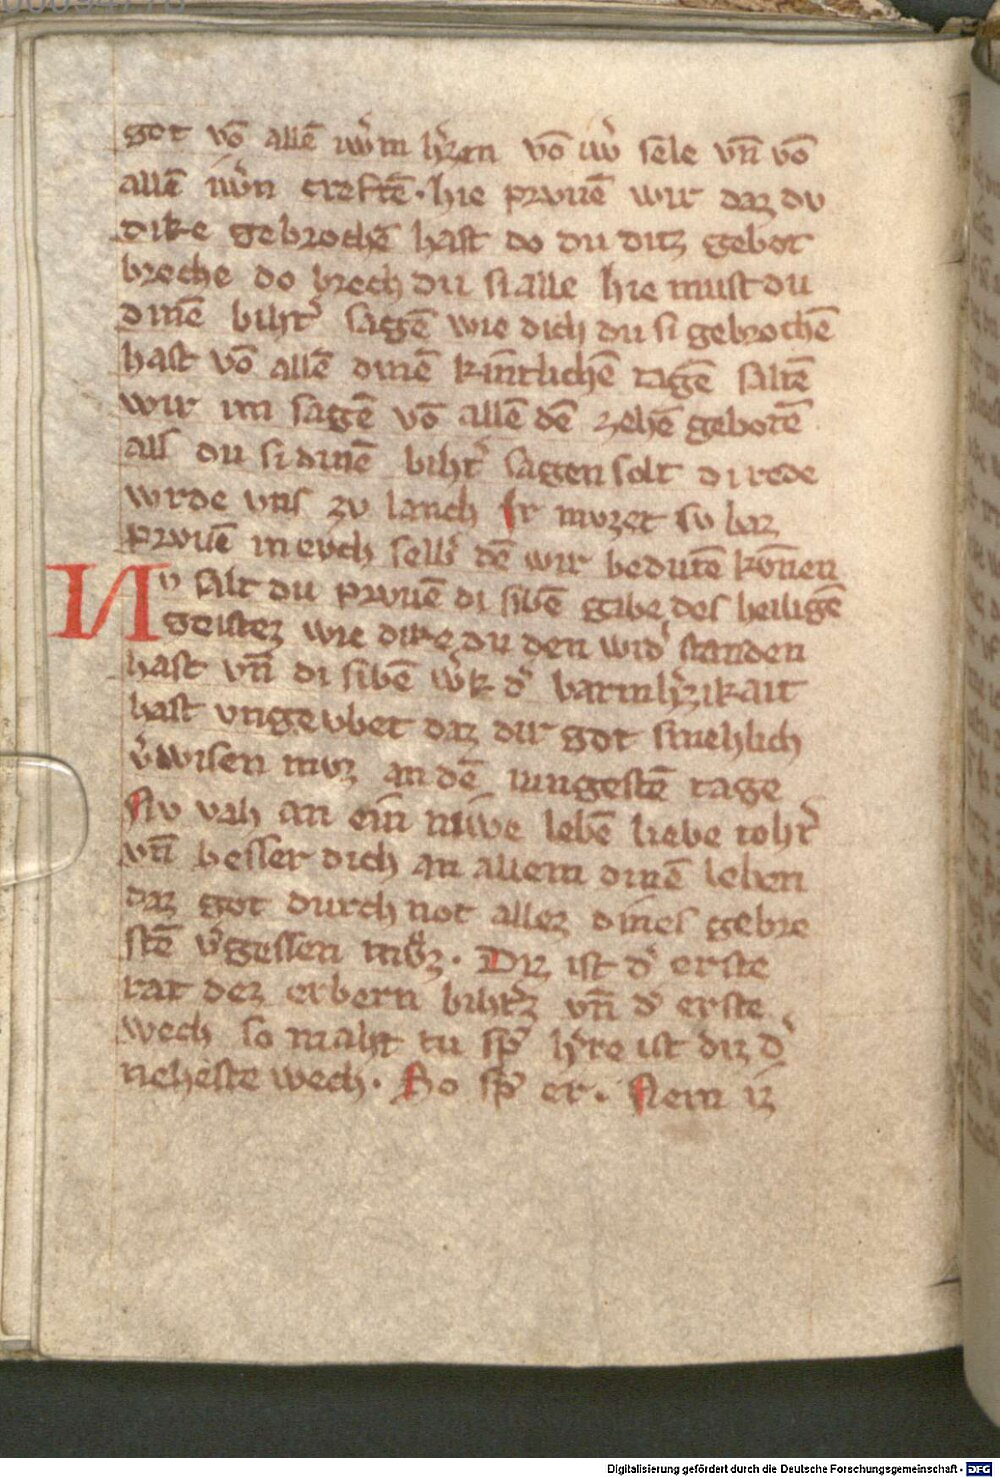 got vō allē iwͥm hͥzen vō iwͥ sele vn̄ vō
allē iwͥn creftē · hie pruuē wir daz du
dike gebrochē hast do du ditz gebot
breche do brech du si alle hie must du
dinē bihtͥ sagē wie dich du si gebrochē
hast vō allē dinē kintlichē tagē saltē
wir im sagē vō allē dē zehē gebotē
als du si dinē bihtͥ sagen solt di rede
wrde vns zv lanch Ir mvzet sv baz
pruuē in evch selbͥ dē wir bedutē kōnen
Nv salt du pruuē di sibē gabe des heiligē
geistez wie dike du den widͥ standen
hast vn̄ di sibē wͥk dͥ barmhͥzikait
hast vngevbet daz dir got smehlich
vͥwisen mvz an dē iungestē tage
Nv vah an ein niwe lebē liebe tohtͥ
vn̄ besser dich an allem dinē leben
daz got durch not allez dines gebre
stē vͥgessen mvͦz · Diz ist dͥ erste
rat dez erbern bihtͥz vn̄ dͥ erste
wech so maht tu spͥ hͥre ist diz dͥ
neheste wech · So spͥ er · Nein iz
Digitalisierung gefördert durch die Deutsche Forschungsgemeinschaft - DFG